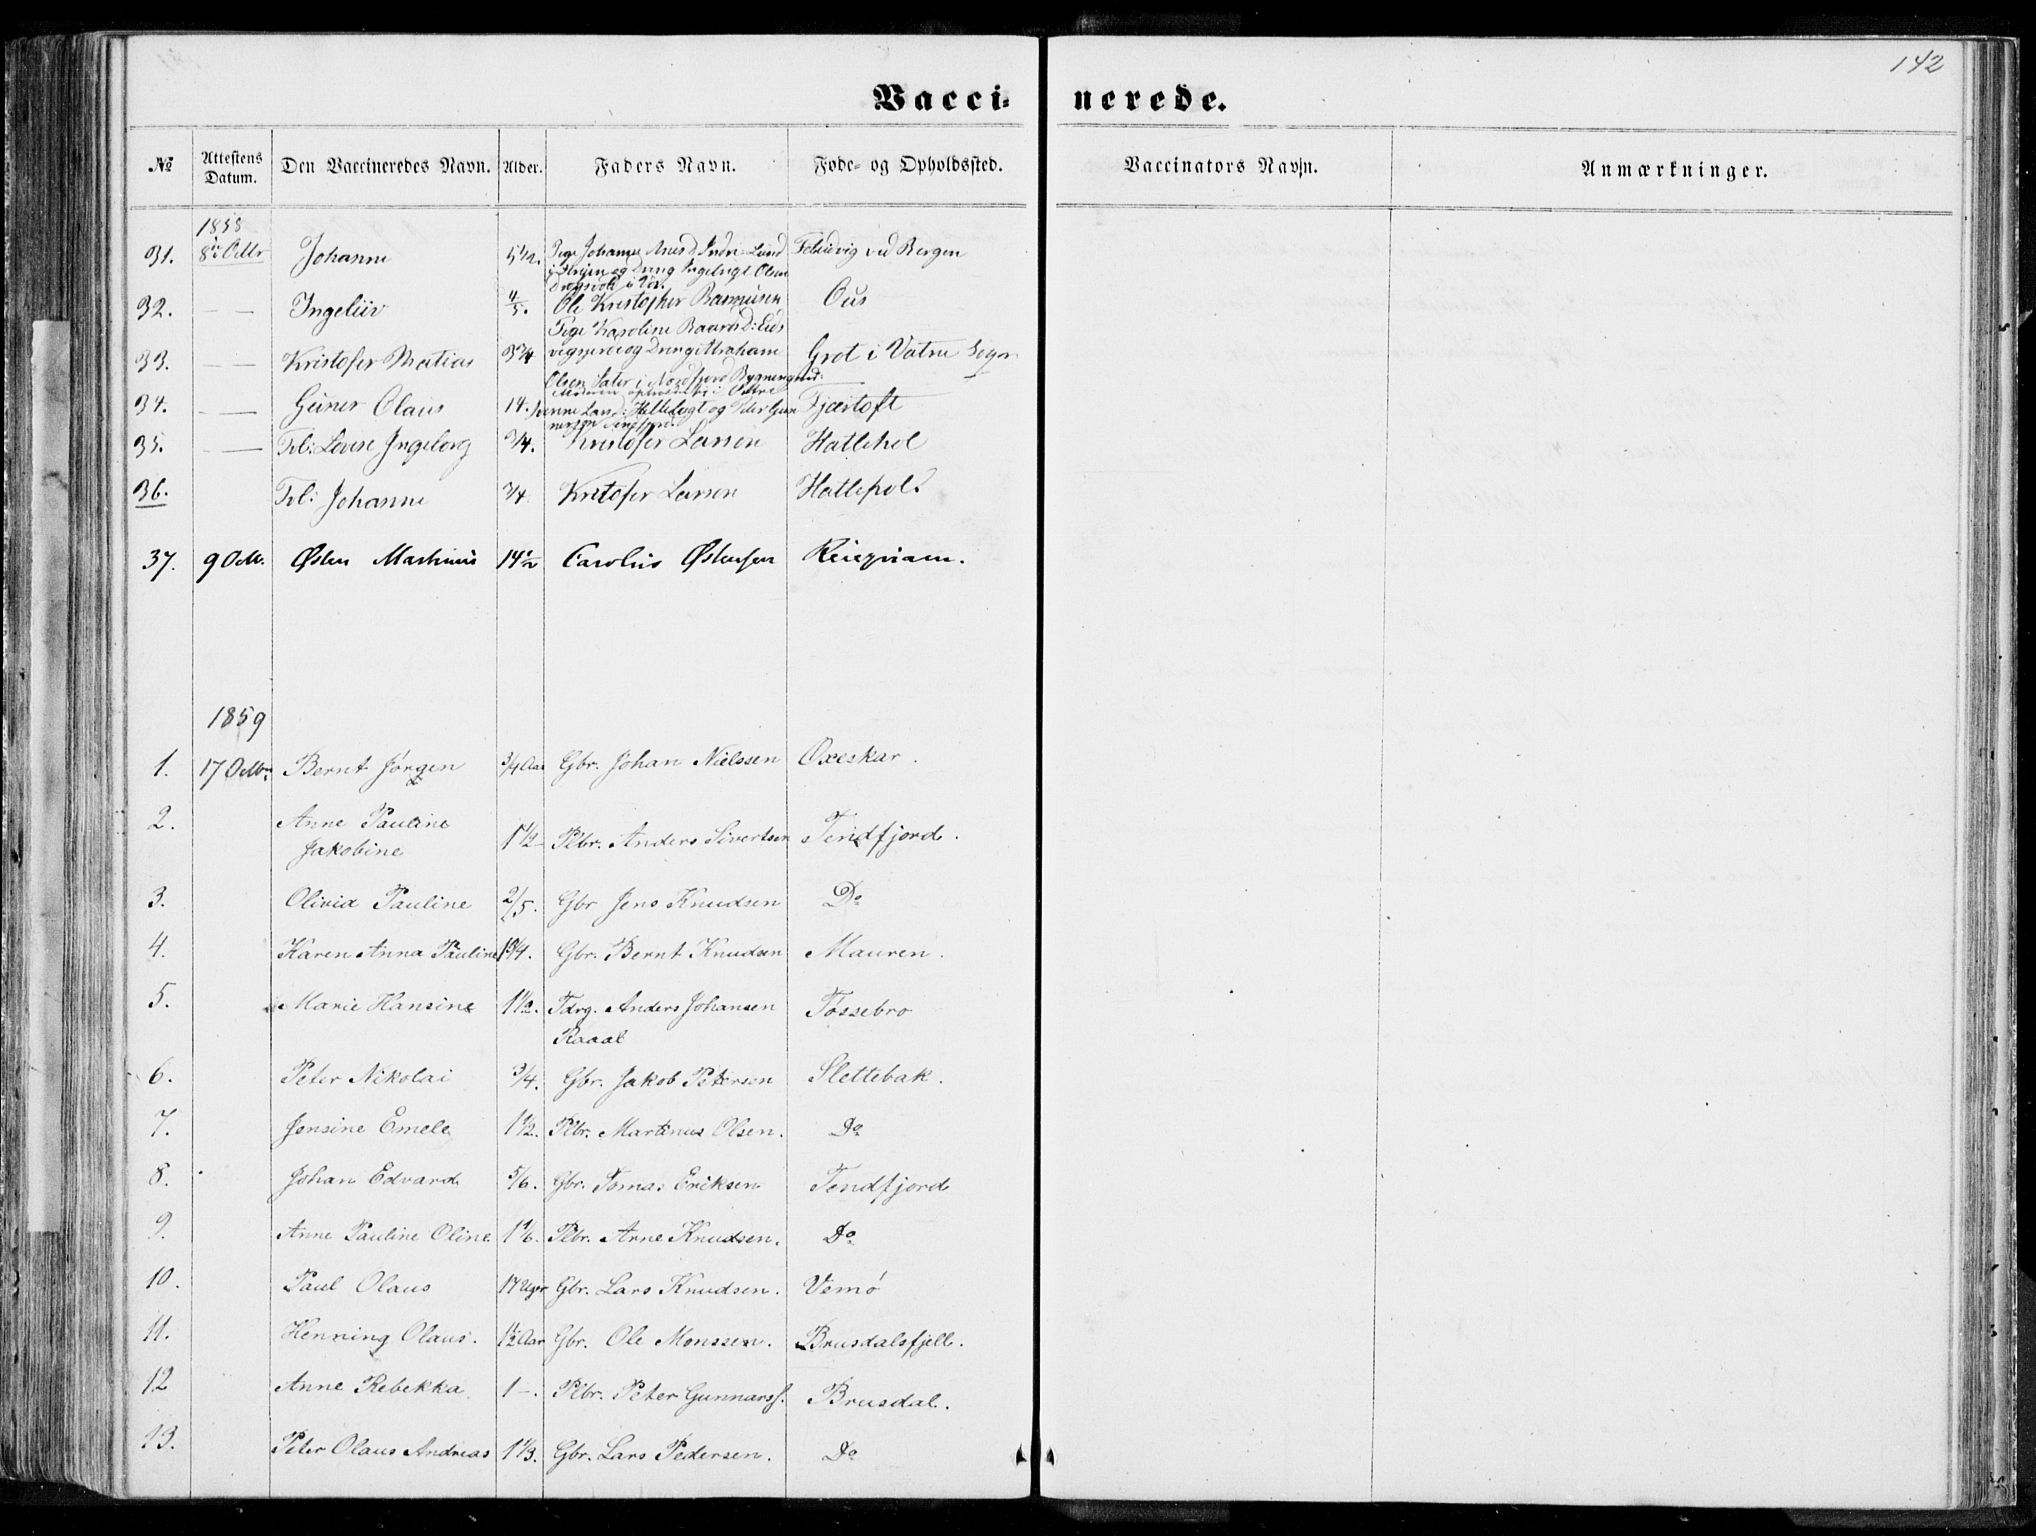 142
Vaccinerede.
No Attestens Datum. Den Vaccineredes Navn. Alder. Faders Navn. Føde- og Opholdssted. Vaccinators Navn. Anmærkninger.
31. Johanne ved Bergen
32. — — Ingeliiv 4/5. Ole Kristofher Rasmusen Ous
33. — — Kristofer Matias 3 3/4 Grot i Vatne Sogn
34. — — Olaus 14. Fjærtoft
35. — — Tvl: Lovise Ingeborg 3/4. Kristofer Larsen Hatlehol
36. Tvl: Johanne 3/4 Kristofer Larsen Hatlehol
37. 9 Octbr. Østen Martinus 14 1/2 Carolus Østensen
1859
1. 17 Octbr. Bernt Jørgen 3/4 Aar Gbr. Johan Nielssen Oxeskar.
2. Anne Pauline
Jakobine 1 1/2 – Plbr. Anders Sivertsen Tendfjord.
3. Olivia Pauline 2/5. Gbr Jens Knudsen Do
4. Karen Anna Pauline 1 3/4. Gbr. Bernt Knudsen Mauren.
5. Marie Hansine 1 1/2. Tdrg. Anders Johansen
Raaal Tøssebro
6. Peter Nikolai 3/4. Gbr. Jakob Petersen Slettebak.
7. Jensine Emele 1 1/2. Plbr. Martinus Olsen. Do
8. Johan Edvard 5/6. Gbr. Tomas Eriksen Tendfjord
9. Anne Pauline Oline 1 1/6. Plbr. Arne Knudsen. Do
10. Paul Olaus 17 Uger Gbr. Lars Knudsen. Vemø
11. Henning Olaus. 1 1/2 Aar Gbr. Ole Monssen. Brusdalsfjell.
12 Anne Rebekka 1 –. Plbr. Peter Gunnarss. Brusdal.
13. Peter Olaus Andreas 1 1/3. Gbr. Lars Pedersen. Do